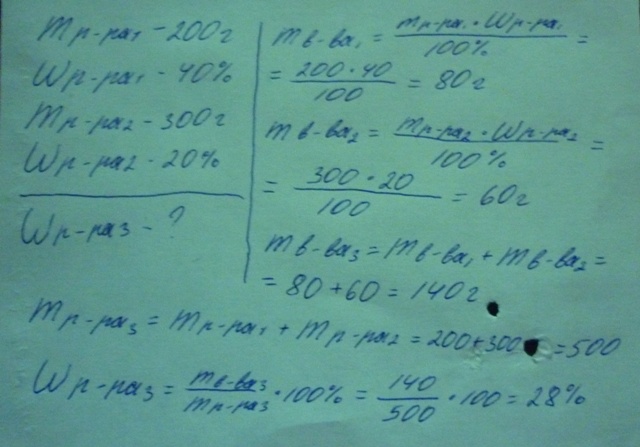 mр-ра₁ - 200г
Wр-ра₁ - 40%
mр-ра₂ - 300г
Wр-ра₂ - 20%
Wр-ра₃ - ?
mв-ва₁ = mр-ра₁ · Wр-ра₁ / 100% =
= 200 · 40 / 100 = 80г
mв-ва₂ = mр-ра₂ · Wр-ра₂ / 100% =
= 300 · 20 / 100 = 60г
mв-ва₃ = mв-ва₁ + mв-ва₂ =
= 80 + 60 = 140г
mр-ра₃ = mр-ра₁ + mр-ра₂ = 200+300 = 500
Wр-ра₃ = mв-ва₃ / mр-ра₃ · 100% = 140 / 500 · 100 = 28%